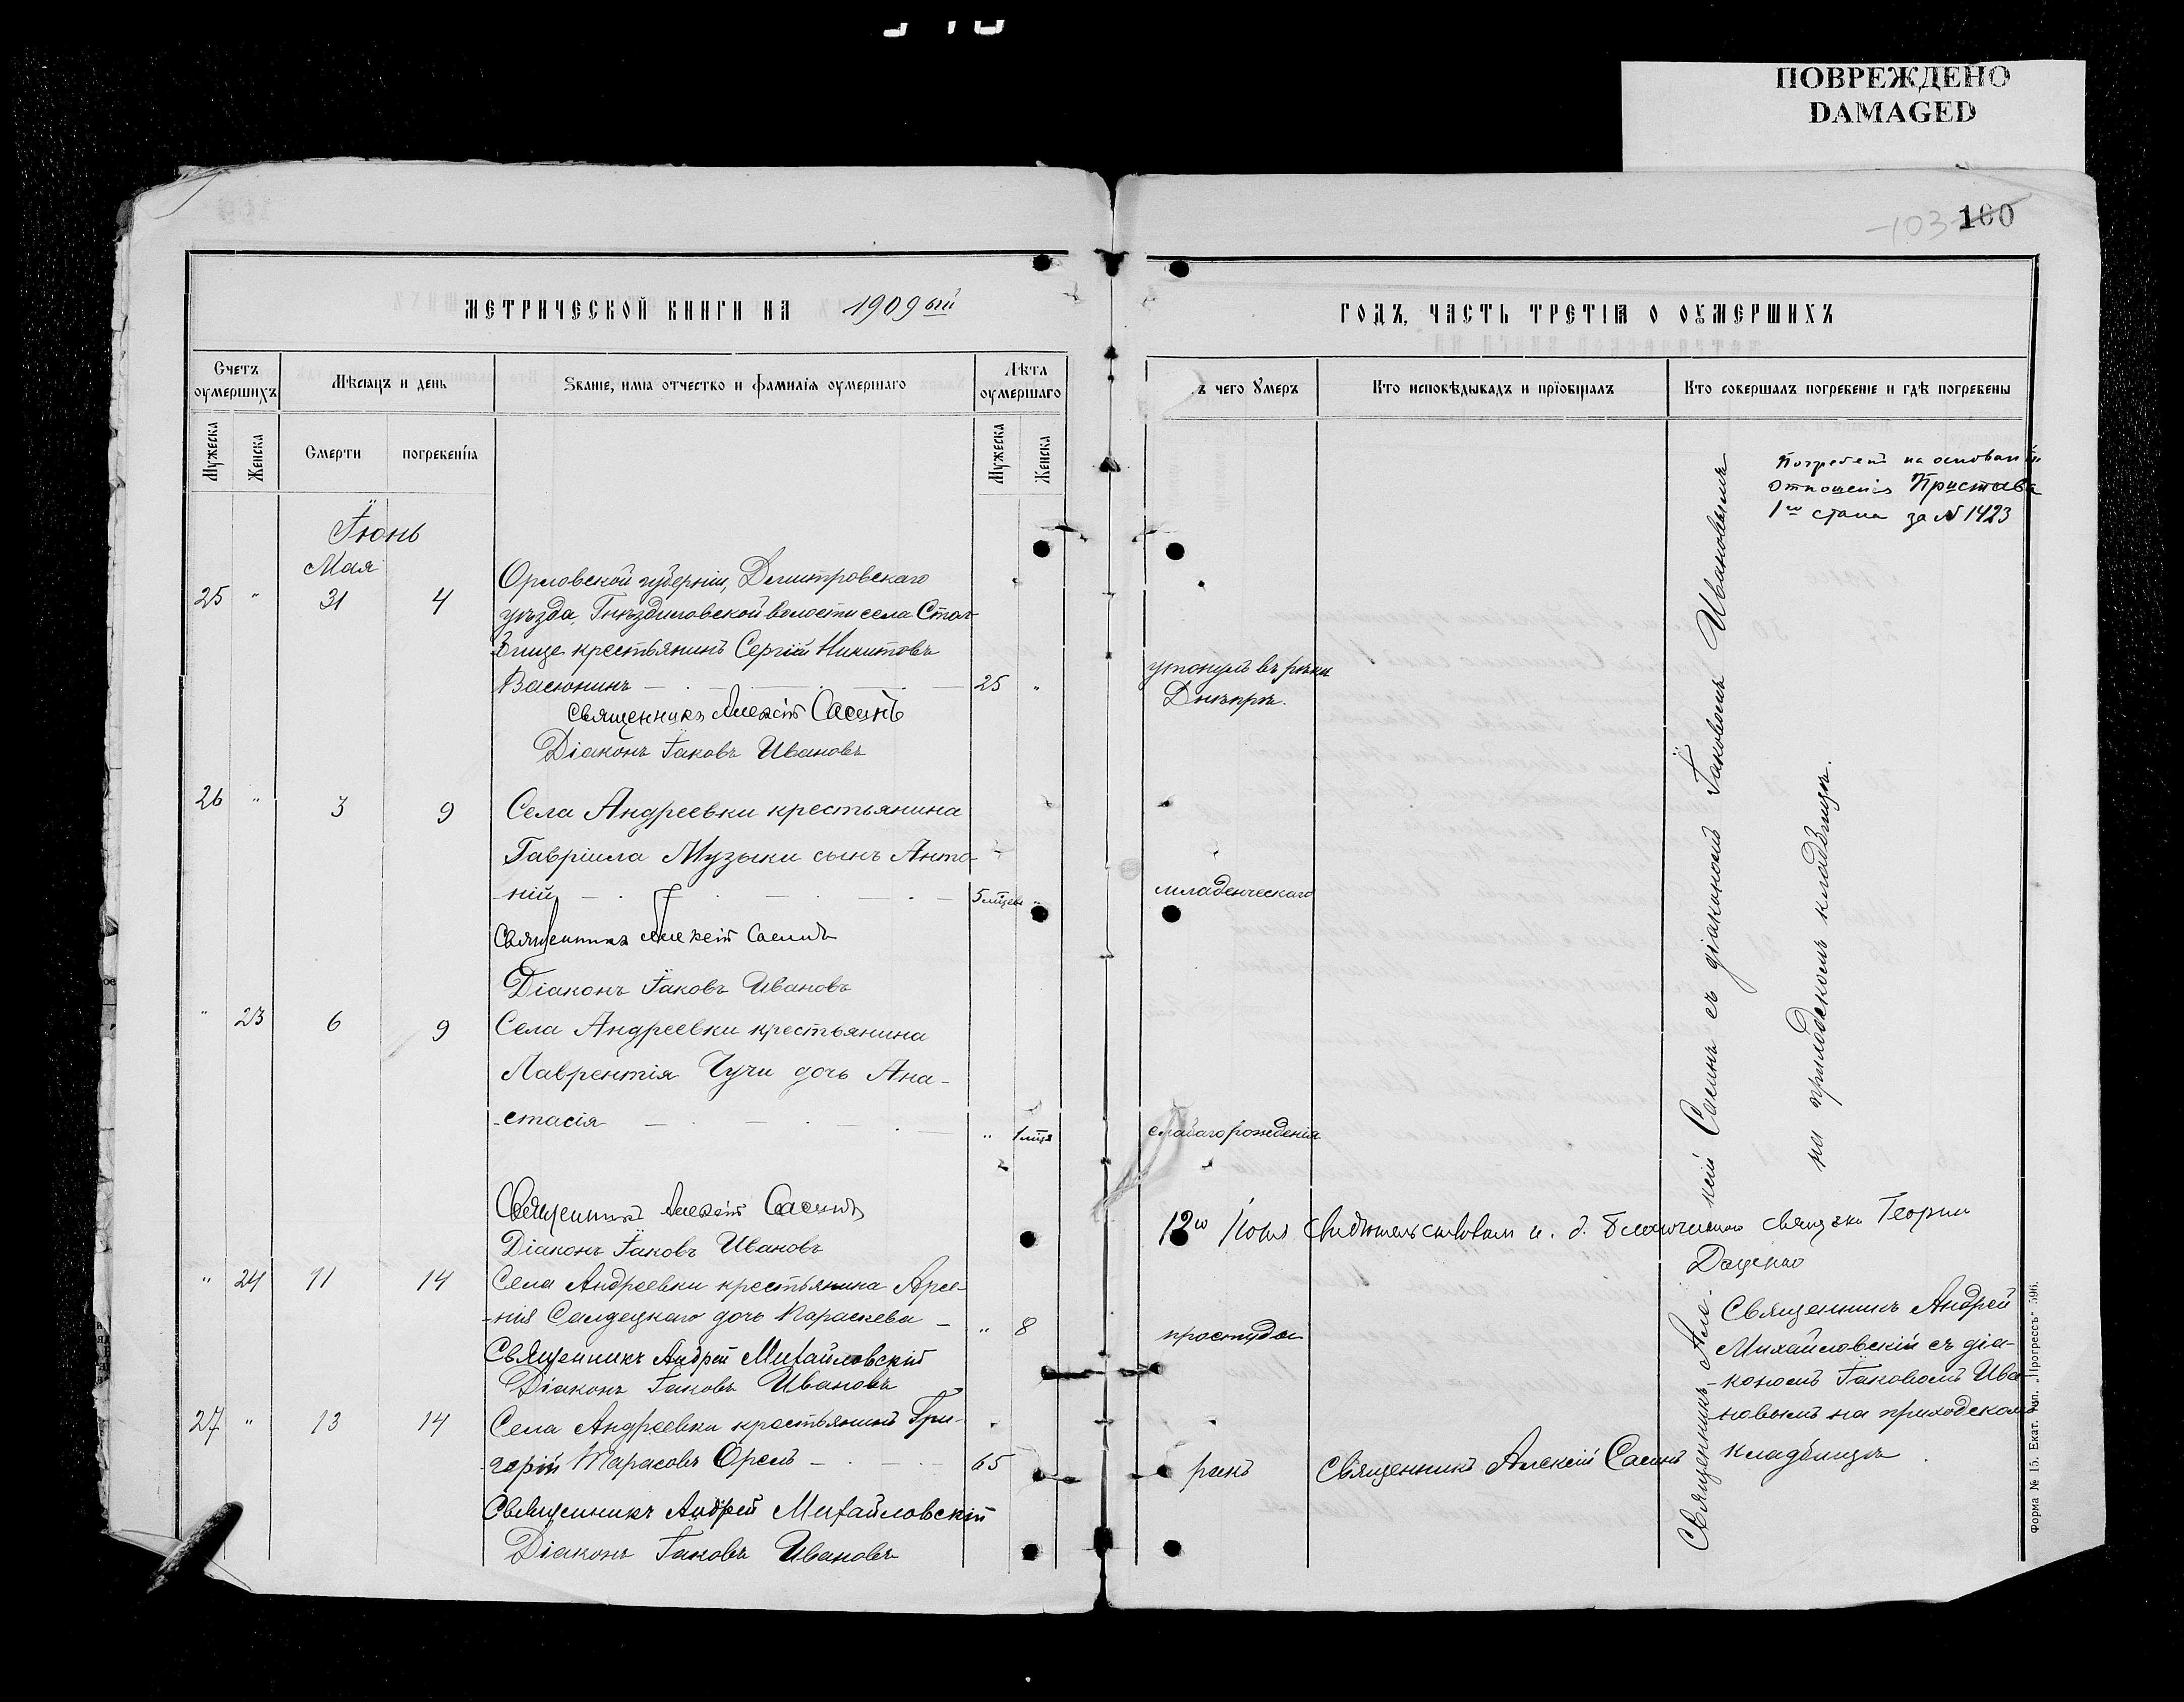 ПОВРЕЖДЕНО
DAMAGED
103
100
МЕТРИЧЕСКОЙ КНИГИ НА 1909ый
Счетъ оумершихъ
Мѣсяцъ и день
Званіе, имя отчество и фамилія оумершаго
Лѣта оумершаго
Мужеска
Женска
Смерти
погребенія
Мужеска
Женска
Іюнь
Мая
25 " 31 4
Орловской губерніи, Дмитровскаго
уѣзда, Гнѣздиловской волости села Стол-
бище крестьянинъ Сергій Никитовъ
Васюнинъ — 25 "
Священникъ Алексій Сасинъ
Діаконъ Іаковъ Ивановъ
26 " 3 9
Села Андреевки крестьянина
Гавріила Музыки сынъ Анто-
ній — 5 мѣсяц "
Священникъ Алексій Сасинъ
Діаконъ Іаковъ Ивановъ
" 23 6 9
Села Андреевки крестьянина
Лаврентія Чучи дочь Ана-
-стасія — " 1 мѣс
Священникъ Алексій Сасинъ
Діаконъ Іаковъ Ивановъ
" 24 11 14
Села Андреевки крестьянина Арсе-
-нія дочь Параскева — " 8
Священникъ Андрей Михайловскій
Діаконъ Іаковъ Ивановъ
27 " 13 14
Села Андреевки крестьянинъ Гри-
-горій Тарасовъ Орелъ — 65
Священникъ Андрей Михайловскій
Діаконъ Іаковъ Ивановъ
ГОДЪ, ЧАСТЬ ТРЕТІЯ О ОУМЕРШИХЪ
ъ чего Умеръ
Кто исповѣдывалъ и пріобщалъ
Кто совершалъ погребеніе и гдѣ погребены
Погребенъ на основаніи
отношенія Пристава
1го стана за № 1423
утонулъ въ рѣки
Днѣпръ.
младенческаго
слабаго рожденія
Священникъ Алексій Сасинъ съ діакономъ Іаковомъ Ивановымъ
на приходскомъ кладбищѣ.
12го Іюня свидѣтельствовалъ и. д. благочиннаго священ Георгій
Даценко
простуды
Священникъ Андрей
Михайловскій съ діа-
-кономъ Іаковомъ Ива-
-новымъ на приходскомъ
кладбищѣ
ракъ
Священникъ Алексій Сасинъ
Форма № 15. Екат. тип. „Прогрессъ" 596.